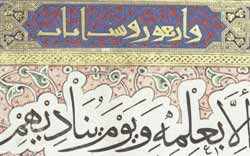 واربعون وست ايات
إلا بعلمه ويوم يناديهم